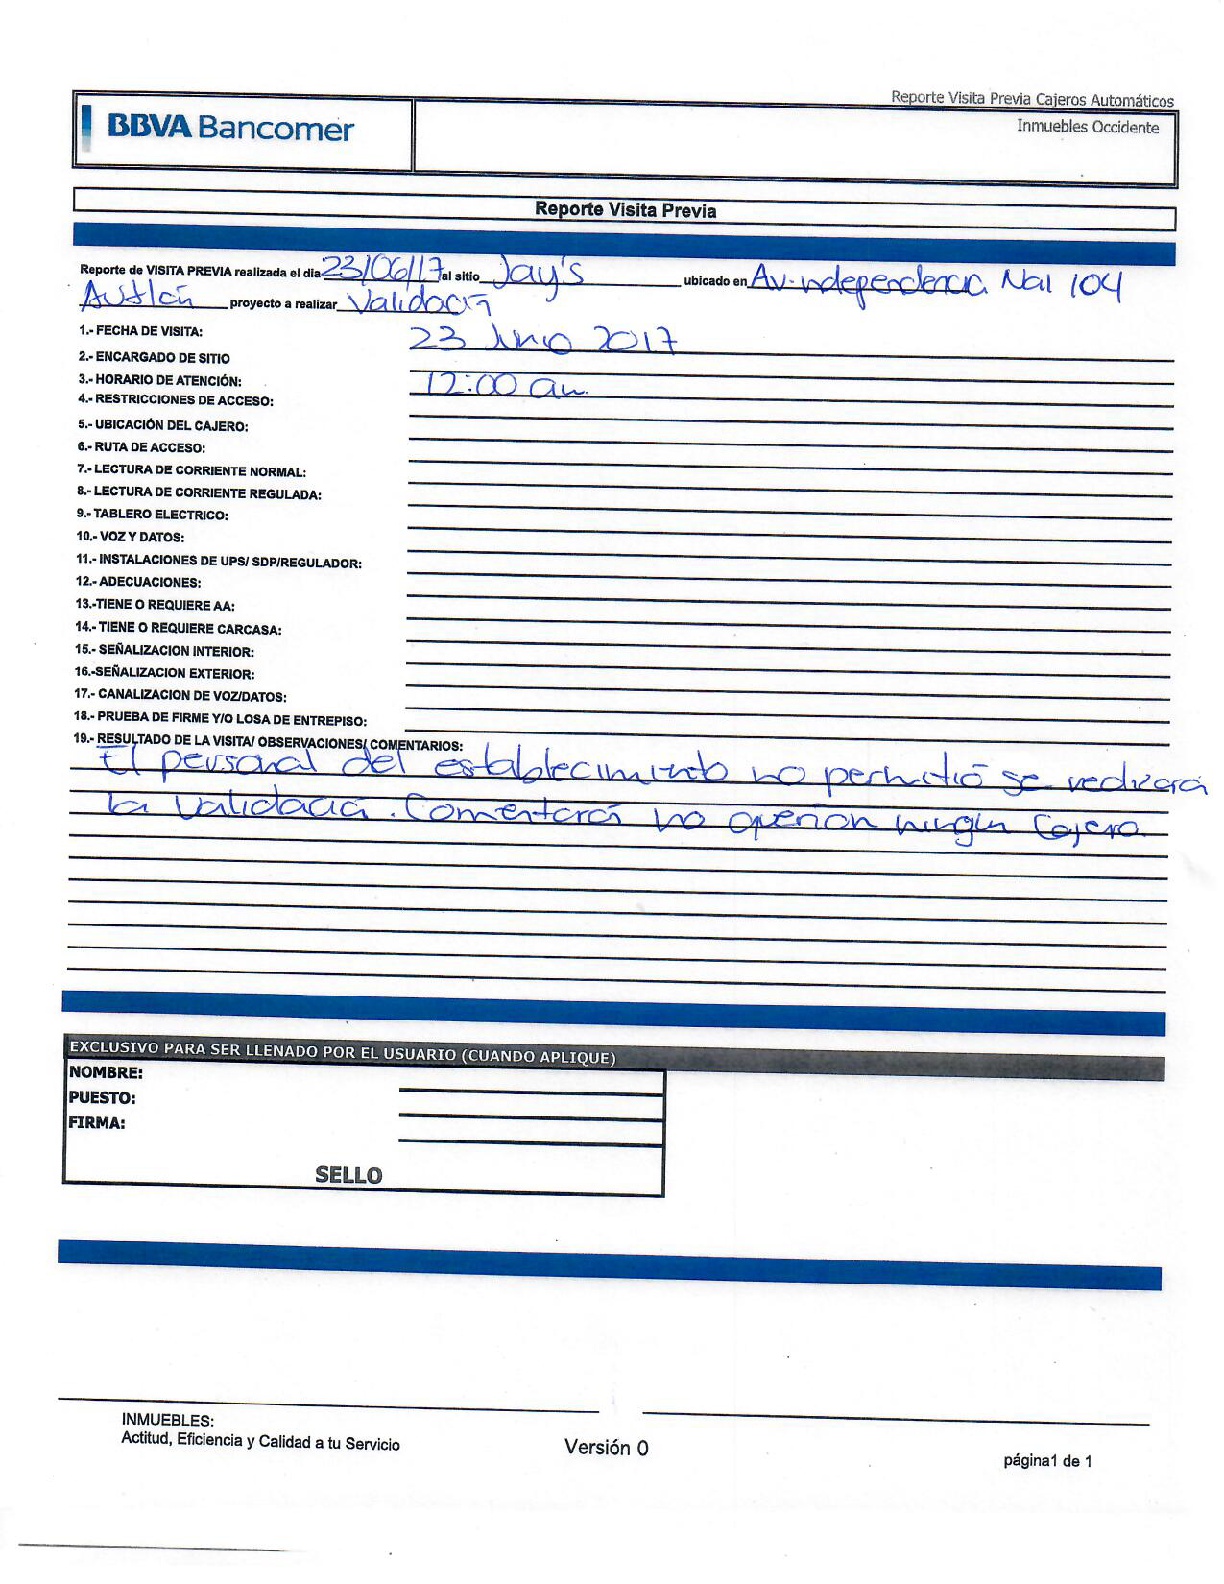 Reporte Visita Previa Cajeros Automáticos
BBVA Bancomer
Inmuebles Occidente
Reporte Visita Previa
Reporte de VISITA PREVIA realizada el dia 23/06/17 al sitio Jay's ubicado en Av. independencia Nal 104
Autlán proyecto a realizar Validación
1.- FECHA DE VISITA: 23 Junio 2017
2.- ENCARGADO DE SITIO
3.- HORARIO DE ATENCIÓN: 12:00 am.
4.- RESTRICCIONES DE ACCESO:
5.- UBICACIÓN DEL CAJERO:
6.- RUTA DE ACCESO:
7.- LECTURA DE CORRIENTE NORMAL:
8.- LECTURA DE CORRIENTE REGULADA:
9.- TABLERO ELECTRICO:
10.- VOZ Y DATOS:
11.- INSTALACIONES DE UPS/ SDP/REGULADOR:
12.- ADECUACIONES:
13.-TIENE O REQUIERE AA:
14.- TIENE O REQUIERE CARCASA:
15.- SEÑALIZACION INTERIOR:
16.-SEÑALIZACION EXTERIOR:
17.- CANALIZACION DE VOZ/DATOS:
18.- PRUEBA DE FIRME Y/O LOSA DE ENTREPISO:
19.- RESULTADO DE LA VISITA/ OBSERVACIONES/ COMENTARIOS:
El personal del establecimiento no permitió se realizara
la validación. Comentarón no querian ningún Cajero
EXCLUSIVO PARA SER LLENADO POR EL USUARIO (CUANDO APLIQUE)
NOMBRE:
PUESTO:
FIRMA:
SELLO
INMUEBLES:
Actitud, Eficiencia y Calidad a tu Servicio
Versión 0
página1 de 1